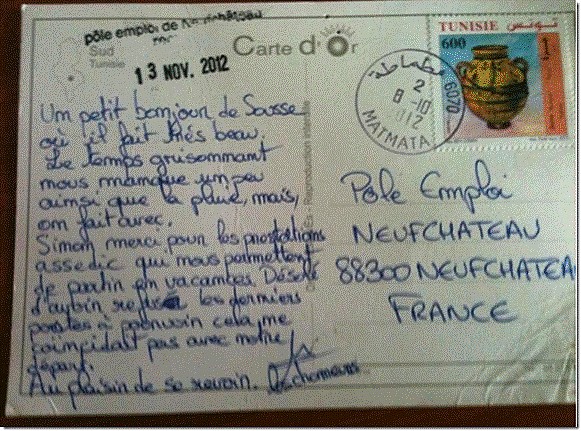 pôle emploi de Neufchâteau
13 NOV. 2012
Sud
Tunisie
Carte d'Or
TUNISIE تونس
600
مطماطة
6070
2
8-10
012
MATMATA
Un petit bonjour de Sousse
où il fait très beau.
Le temps grisonnant
nous manque un peu
ainsi que la pluie, mais,
on fait avec.
Sinon merci pour les prestations
assedic qui nous permettent
de partir en vacances. Désolé
d'avoir refusé les derniers
postes à pourvoir cela ne
coïncidait pas avec notre
départ.
Au plaisir de se revoir.
Pôle Emploi
NEUFCHATEAU
88300 NEUFCHATEA
FRANCE